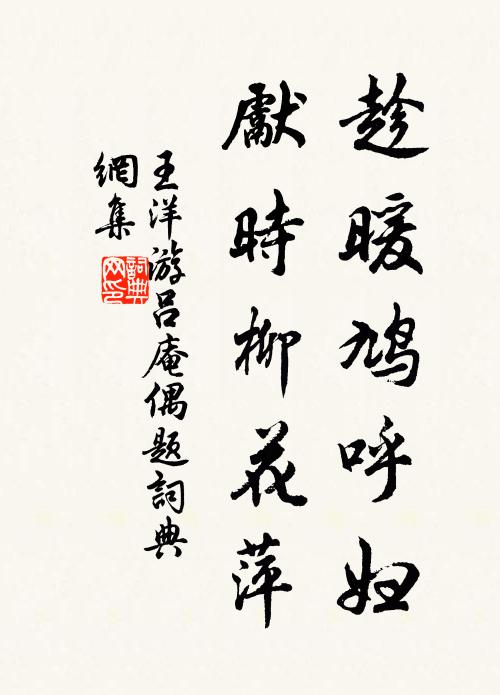 趁暖鳩呼婦
獻時柳花萍
王洋游呂庵偶題詞典
網集
詞典
网印